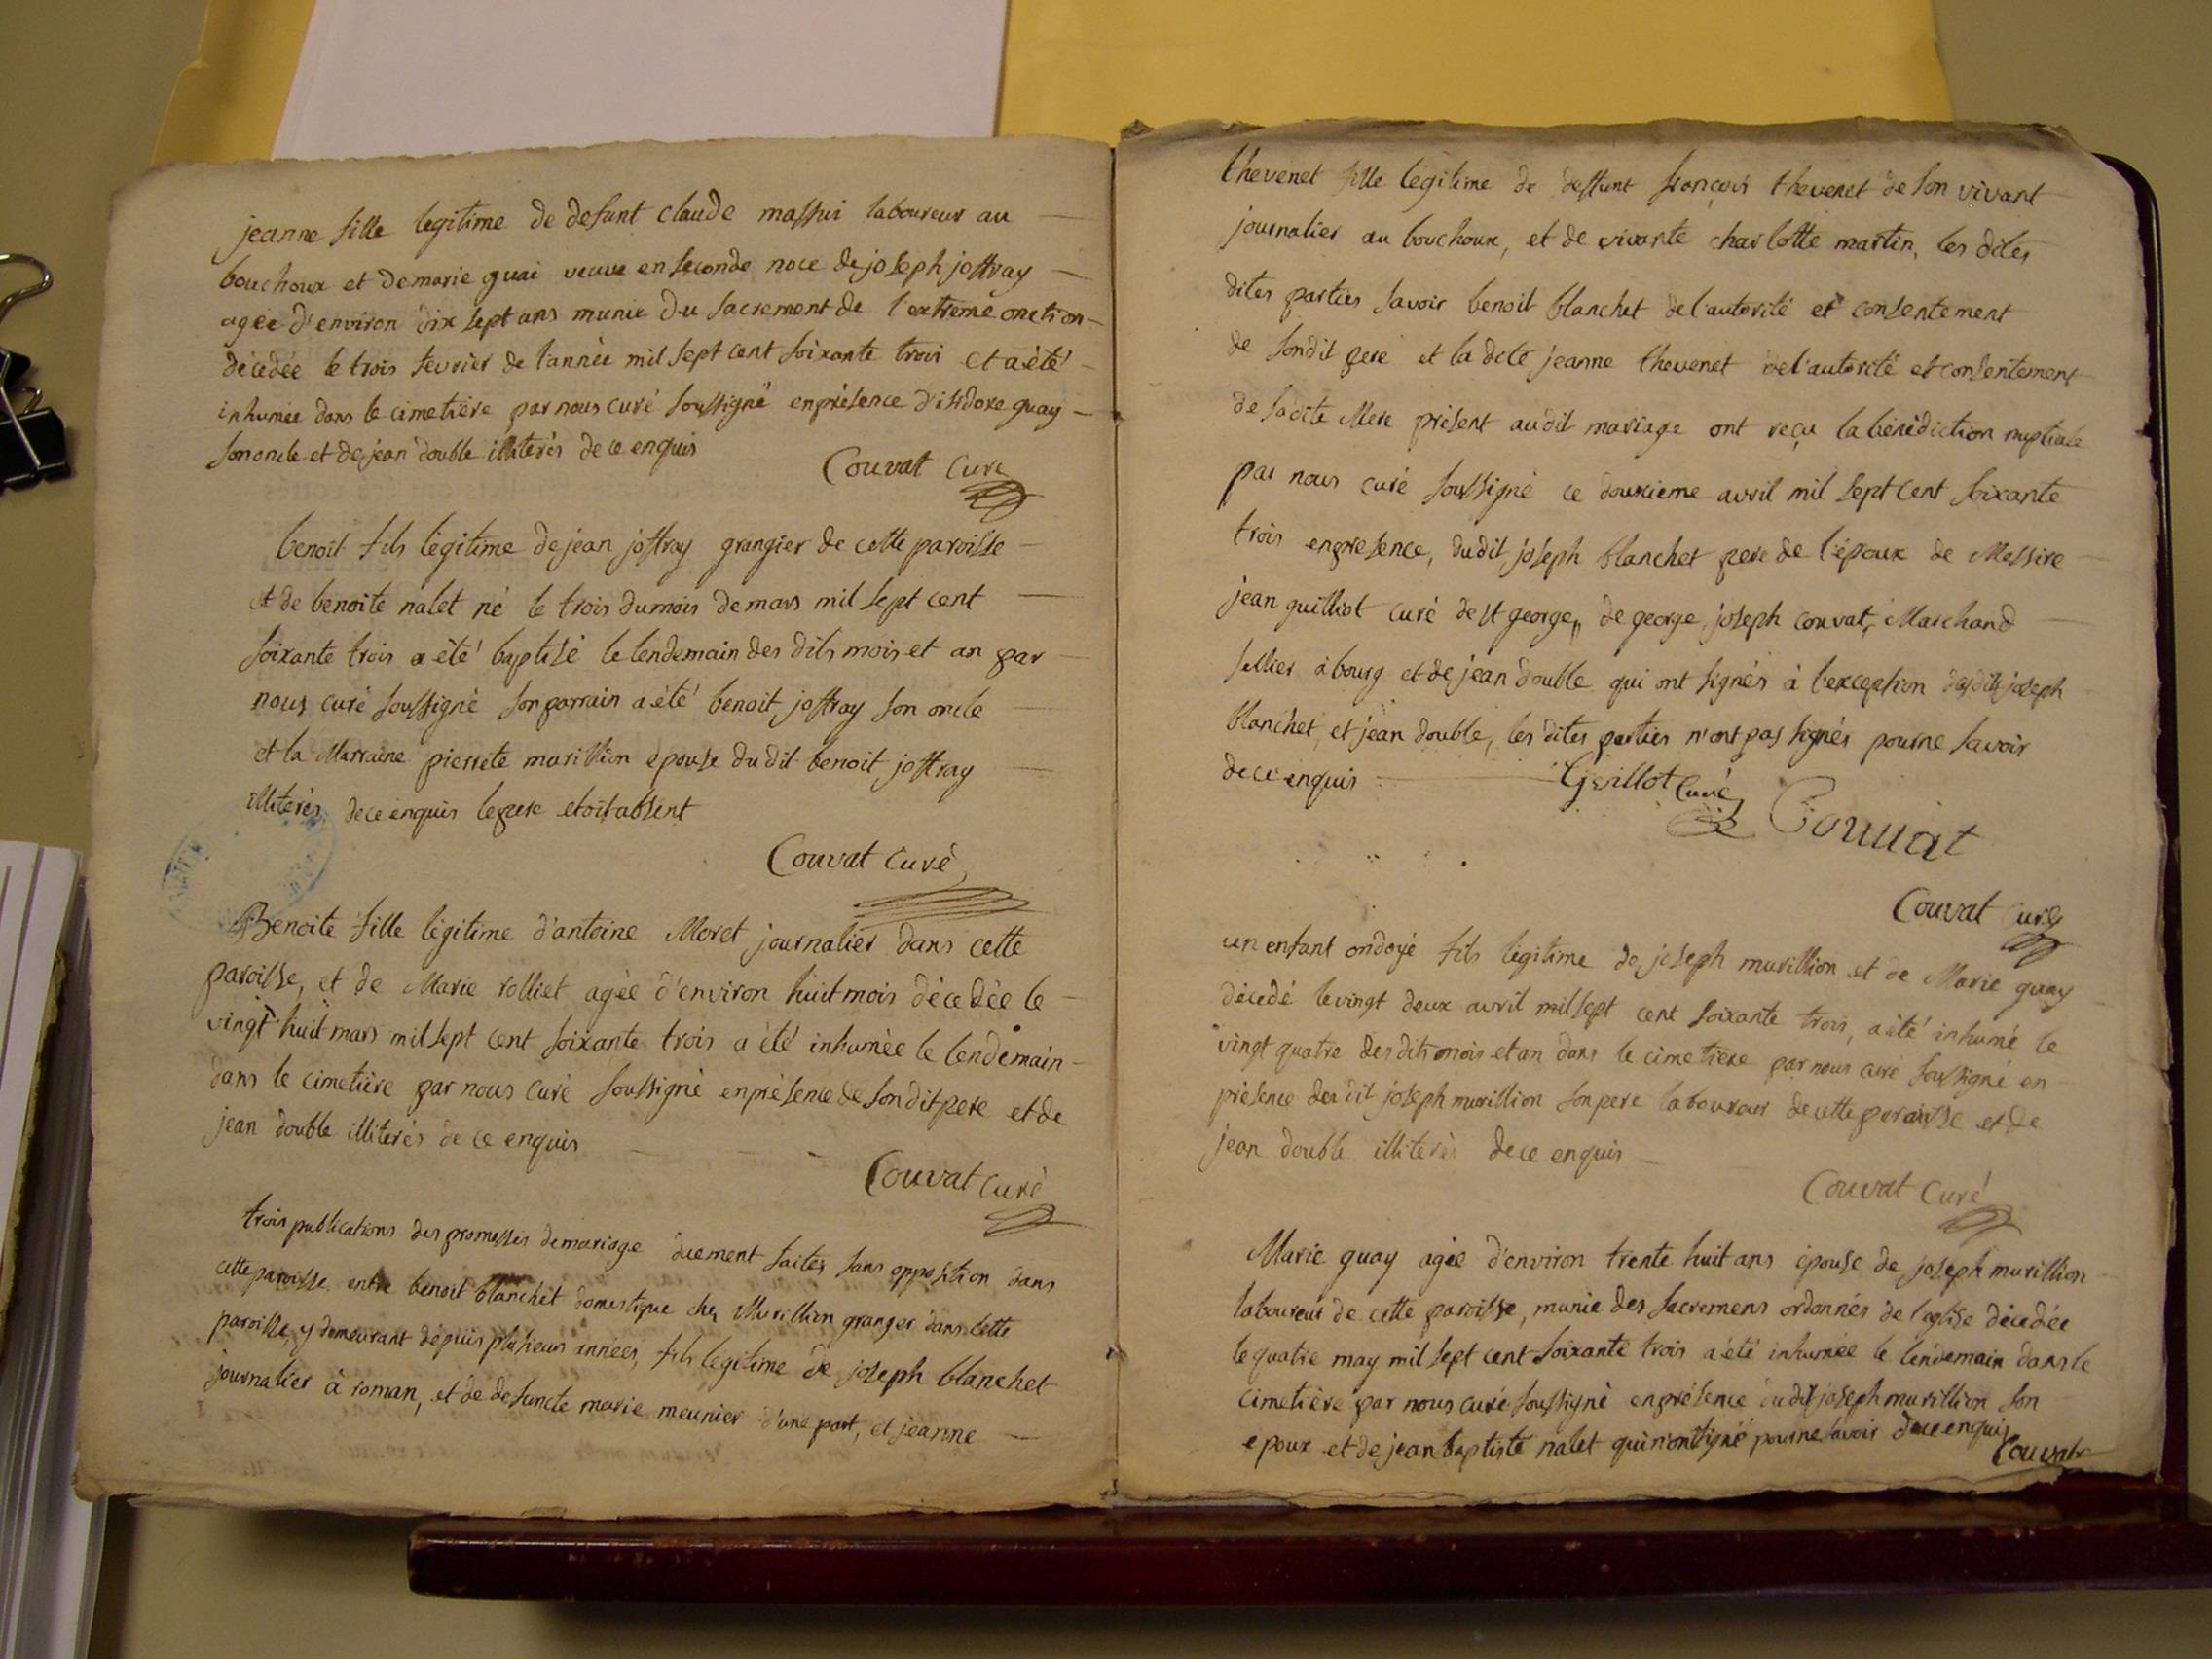 jeanne fille legitime de defunt claude massui laboureur au
bouchoux et de marie guai veuve en seconde noce de joseph joffray
agée d'environ dix sept ans munie du sacrement de l'extreme onction
décédée le trois fevrier de l'année mil sept cent soixante trois et a été
inhumée dans le cimetière par nous curé soussigné en présence d'isidore guay
son oncle et de jean double illiterés de ce enquis
Couvat curé
benoit fils légitime de jean joffray grangier de cette paroisse
et de benoite nalet né le trois du mois de mars mil sept cent
soixante trois a été baptisé le lendemain des dits mois et an par
nous curé soussigné son parrain a été benoit joffray son oncle
et la Marraine pierrete murillion epouse du dit benoit joffray
illiterés de ce enquis le pere etoit absent
Couvat curé
Benoite fille légitime d'antoine Moret journalier dans cette
paroisse, et de Marie rolliet agée d'environ huit mois décédée le
vingt huit mars mil sept cent soixante trois a été inhumée le lendemain
dans le cimetière par nous curé soussigné en présence de son dit pere et de
jean double illiterés de ce enquis
Couvat curé
trois publications des promesses de mariage duement faites sans opposition dans
cette paroisse entre benoit blanchet domestique chez Murillion granger dans cette
paroisse, y demeurant dépuis plusieurs années, fils legitime de joseph blanchet
journalier à roman, et de defuncte marie meunier d'une part, et jeanne
thevenet fille legitime de deffunt françois thevenet de son vivant
journalier au bouchoux, et de vivante charlotte martin, les dites
dites parties savoir benoit blanchet de l'autorité et consentement
de sondit pere et la dite jeanne thevenet de l'autorité et consentement
de sadite Mere présent audit mariage ont reçu la bénédiction nuptiale
par nous curé soussigné ce douxieme avril mil sept cent soixante
trois en presence, du dit joseph blanchet pere de l'époux de Messire
jean guilliot curé de st george, de george joseph couvat, Marchand
sellier à bourg et de jean double qui ont signés à l'exception desdits joseph
blanchet, et jean double, les dites parties n'ont pas signés pour ne savoir
de ce enquis Guillot Curé
Couuat
Couvat curé
un enfant ondoyé fils legitime de joseph murillion et de Marie guay
décédé le vingt deux avril mil sept cent soixante trois, a été inhumé le
vingt quatre des dits mois et an dans le cimetière par nous curé soussigné en
présence du dit joseph murillion son pere laboureur de cette paroisse et de
jean double illiterés de ce enquis
Couvat Curé
Marie guay agée d'environ trente huit ans épouse de joseph murillion
laboureur de cette paroisse, munie des sacremens ordonnés de l'eglise décédée
le quatre may mil sept cent soixante trois a été inhumée le lendemain dans le
cimetière par nous curé soussigné en présence du dit joseph murillion son
epoux et de jean baptiste nalet qui n'ont signé pour ne savoir de ce enquis
Couvat